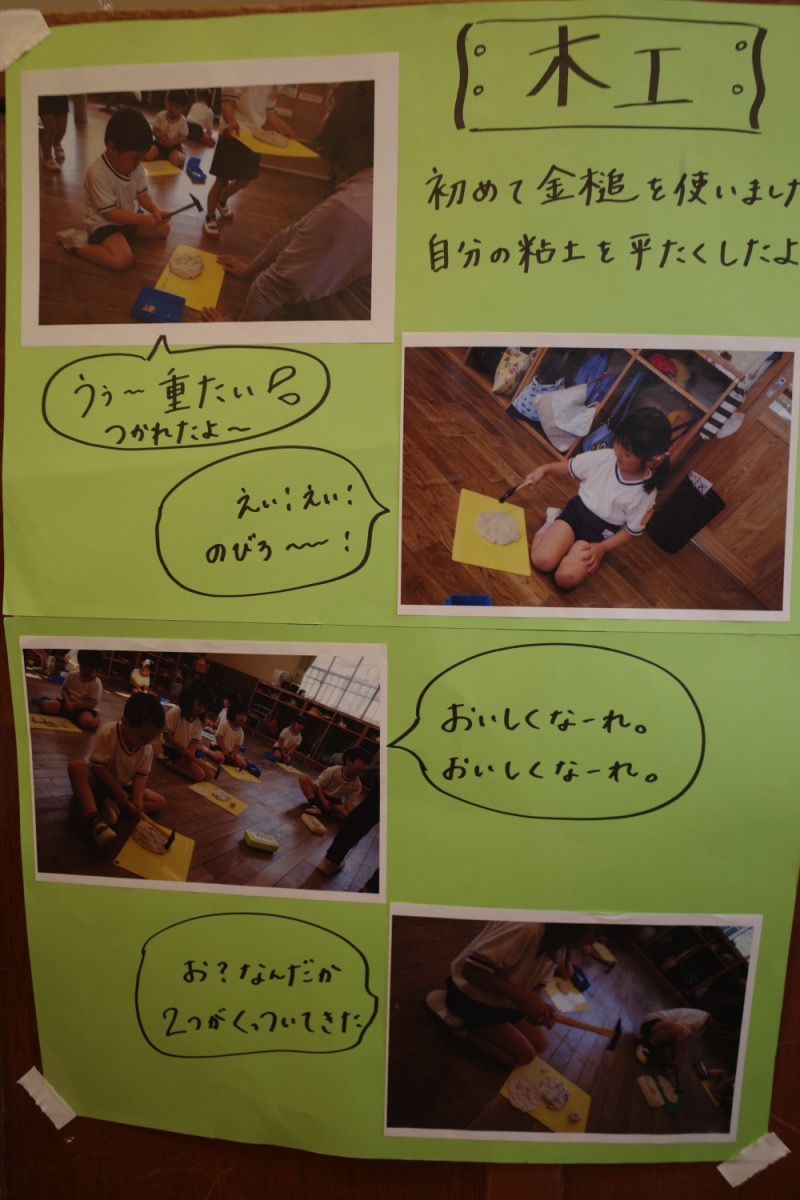 木工
初めて金槌を使いました
自分の粘土を平たくしたよ
うぅ〜重たい
つかれたよ〜
えい!えい!
のびろ〜〜!
おいしくなーれ。
おいしくなーれ。
お?なんだか
2つがくっついてきた